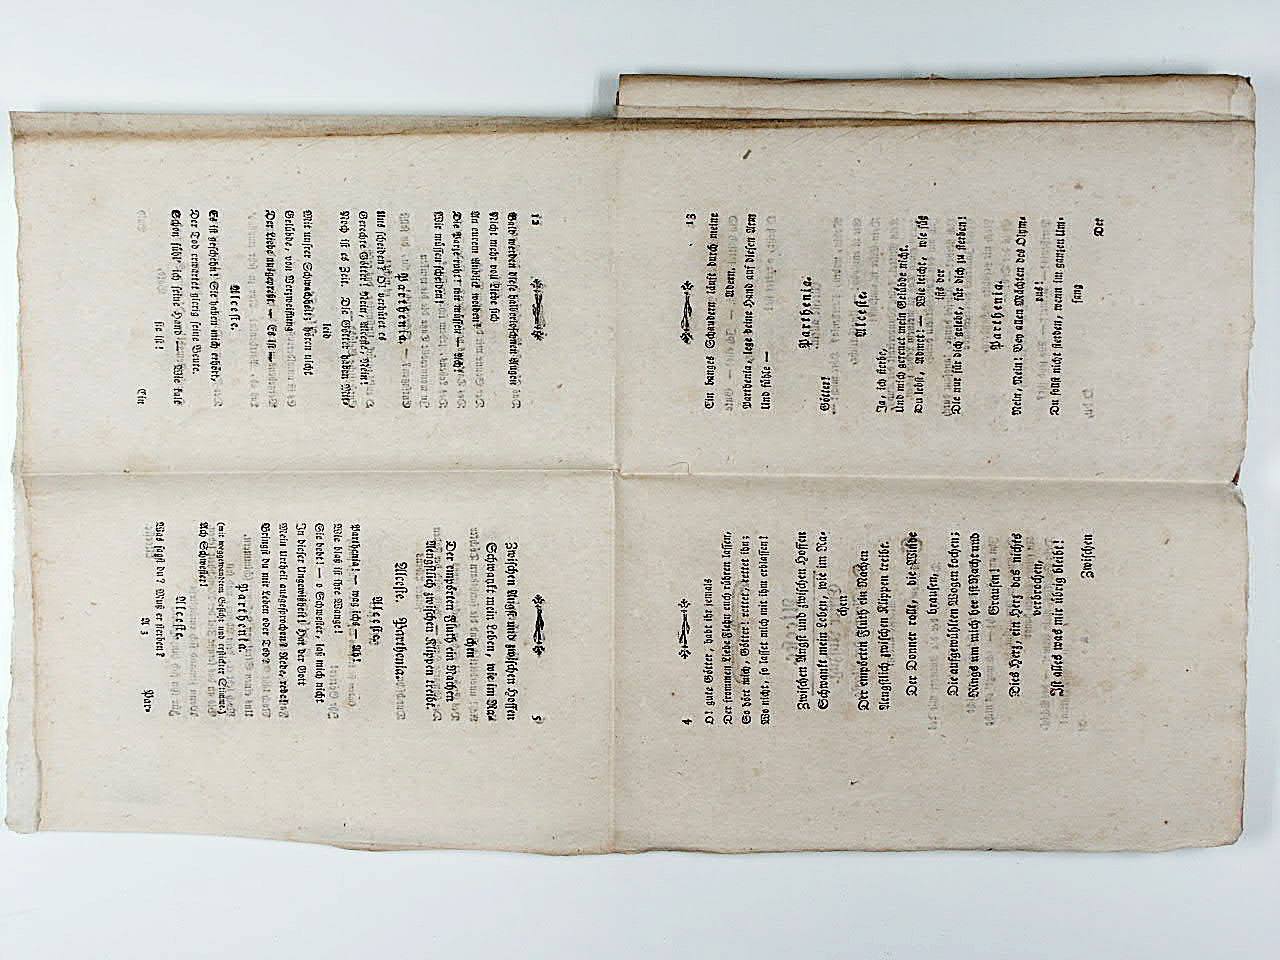 4
O! gute Götter, habt ihr jemals
Der frommen Liebe Flehn euch rühren laſſen,
So hört mich, Götter! rettet, rettet ihn;
Wo nicht, ſo laſſet mich mit ihm erblaſſen!
Zwiſchen Angſt und zwiſchen Hoffen
Schwankt mein Leben, wie im Ra-
chen
Der empörten Fluth ein Nachen
Aengſtlich zwiſchen Klippen treibt.
Der Donner rollt, die Winde
brauſen,
Die aufgewühlten Wogen kochen;
Rings um mich her iſt Nacht und
Grauſen!
Dies Herz, ein Herz das nichts
verbrochen,
Iſt alles was mir übrig bleibt!
Zwiſchen
5
Zwiſchen Angſt und zwiſchen Hoffen
Schwankt mein Leben, wie im Ra-
chen
Der empörten Fluth ein Nachen
Aengſtlich zwiſchen Klippen treibt.
Alceſte. Parthenia.
Alceſte.
Parthenia! — was ſeh ich — Ah!
Wie blaß iſt ihre Wange!
Sie bebt! — o Schweſter, laß mich nicht
In dieſer Ungewißheit! Hat der Gott
Mein Urtheil ausgeſprochen? Rede, rede!
Bringſt du mir Leben oder Tod?
Parthenia.
(mit weggewandtem Geſicht und erſtickter Stimme)
Ach Schweſter!
Alceſte.
Was ſagſt du? Muß er ſterben?
A 3
Par-
12
Bald werden dieſe halberloſchnen Augen
Nicht mehr voll Liebe ſich
An eurem Anblick weiden!
Die Parze rufet mir
Wir müſſen ſcheiden!
Parthenia.
Uns ſcheiden? O! verhütet es
Gerechte Götter! Nein, Alceſte, Nein!
Noch iſt es Zeit. Die Götter haben Mit-
leid
Mit unſrer Schwachheit; hören nicht
Gelübde, von Verzweiflung
Der Liebe ausgepreßt. — Es iſt
Alceſte.
Es iſt geſchehn! Sie haben mich erhört,
Der Tod erwartet gierig ſeine Beute.
Schon fühl' ich ſeine Hand! Wie kalt
ſie iſt!
Ein
13
Ein banges Schaudern läuft durch meine
Adern,
Parthenia, lege deine Hand auf dieſen Arm
Und fühle —
Parthenia.
Götter!
Alceſte.
Ja, ich ſterbe,
Und mich gereuet mein Gelübde nicht.
Du lebſt, Admet! — Wie leicht, wie ſüß
iſts der
Die nur für dich gelebt, für dich zu ſterben!
Parthenia.
Nein, Nein! Bey allen Mächten des Olym-
pus!
Du ſollſt nicht ſterben, wenn im ganzen Um-
fang
Der